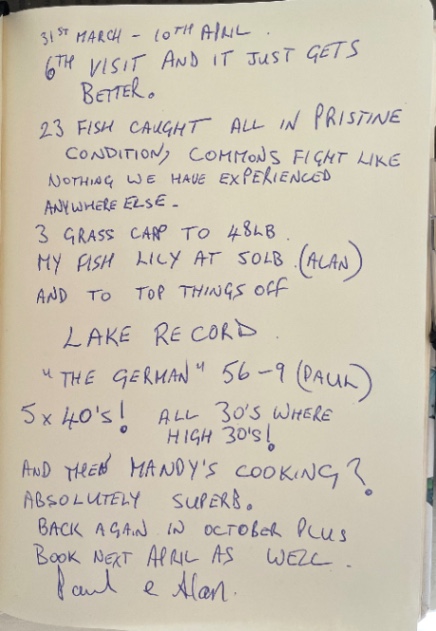 31ST MARCH - 10TH APRIL.
6TH VISIT AND IT JUST GETS
BETTER.
23 FISH CAUGHT ALL IN PRISTINE
CONDITION, COMMONS FIGHT LIKE
NOTHING WE HAVE EXPERIENCED
ANYWHERE ELSE -
3 GRASS CARP TO 48LB.
MY FISH LILY AT 50LB. (ALAN)
AND TO TOP THINGS OFF
LAKE RECORD.
"THE GERMAN" 56-9 (PAUL)
5 x 40'S! ALL 30'S WHERE
HIGH 30'S!
AND THEN MANDY'S COOKING?
ABSOLUTELY SUPERB.
BACK AGAIN IN OCTOBER PLUS
BOOK NEXT APRIL AS WELL.
Paul e Alan.